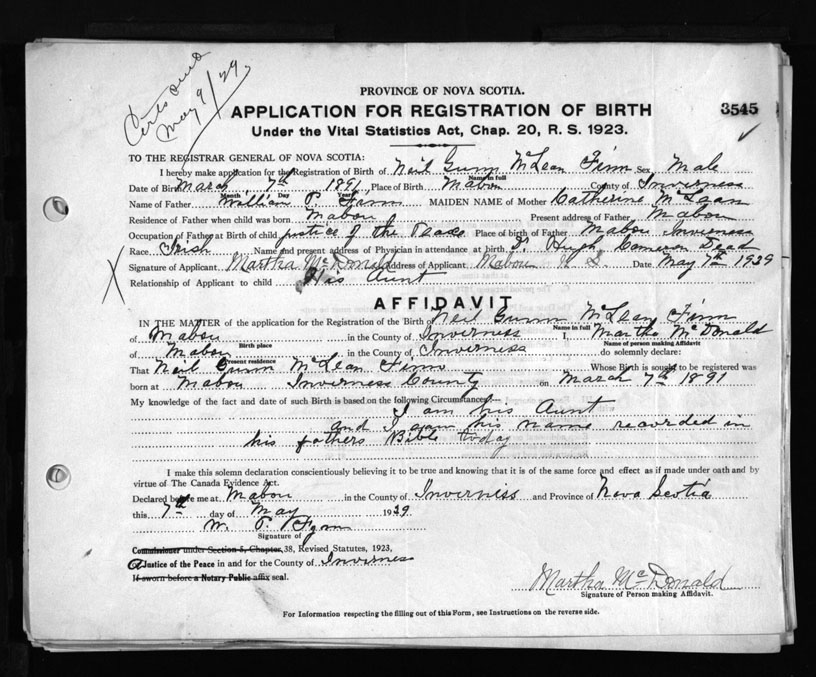 Certs sent
May 9/29
PROVINCE OF NOVA SCOTIA.
APPLICATION FOR REGISTRATION OF BIRTH
3545
Under the Vital Statistics Act, Chap. 20, R. S. 1923.
TO THE REGISTRAR GENERAL OF NOVA SCOTIA:
I hereby make application for the Registration of Birth of Neil Gunn McLean Finn Sex Male
Name in full
Date of Birth March 7th 1891 Place of Birth Mabou County of Inverness
Month Day Year
Name of Father William P. Fynn MAIDEN NAME of Mother Catherine McLean
Residence of Father when child was born Mabou Present address of Father Mabou
Occupation of Father at Birth of child justice of the Peace Place of birth of Father Mabou Inverness
Race Irish Name and present address of Physician in attendance at birth Hugh Cameron Dead
Signature of Applicant Martha McDonald Address of Applicant Mabou N S. Date May 7th 1929
Relationship of Applicant to child His Aunt
X
AFFIDAVIT
IN THE MATTER of the application for the Registration of the Birth of Neil Gunn McLean Finn
Name in full
of Mabou in the County of Inverness I, Martha McDonald
Birth place
Name of person making Affidavit
of Mabou in the County of Inverness do solemnly declare:
Present residence
That Neil Gunn McLean Finn Whose Birth is sought to be registered was
born at Mabou Inverness County on March 7th 1891
My knowledge of the fact and date of such Birth is based on the following Circumstances:—
I am his Aunt
and I saw his name recorded in
his fathers Bible today
I make this solemn declaration conscientiously believing it to be true and knowing that it is of the same force and effect as if made under oath and by
virtue of The Canada Evidence Act.
Declared before me at Mabou in the County of Inverniss and Province of Nova Scotia
this 7th day of May 1929
W. P. Fynn
Signature of
Commissioner under Section 5, Chapter 38, Revised Statutes, 1923,
a Justice of the Peace in and for the County of Inverness
If sworn before a Notary Public affix seal.
Martha McDonald
Signature of Person making Affidavit.
For Information respecting the filling out of this Form, see Instructions on the reverse side.